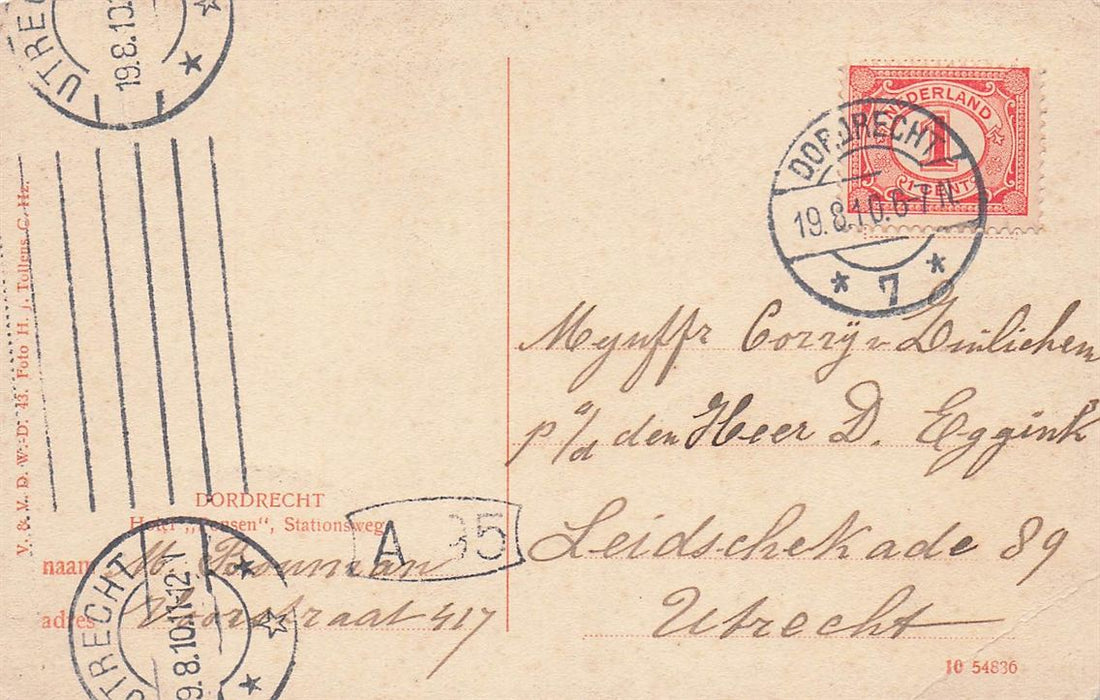 UTREC
19.8.10
NEDERLAND
1
1 CENT
DORDRECHT
19.8.10. 6-7 N
7
V. & V. D. W.-D. 43. Foto H. J. Tollens C. Hz.
Mejuffr Corrÿ v
p/a den Heer D. Eggink
Leidschekade 89
Utrecht
DORDRECHT
Hotel „Ponsen“, Stationsweg
A 35
naam M. Bouman
adres Voorstraat 417
UTRECHT
9.8.10.11-12
10 54836